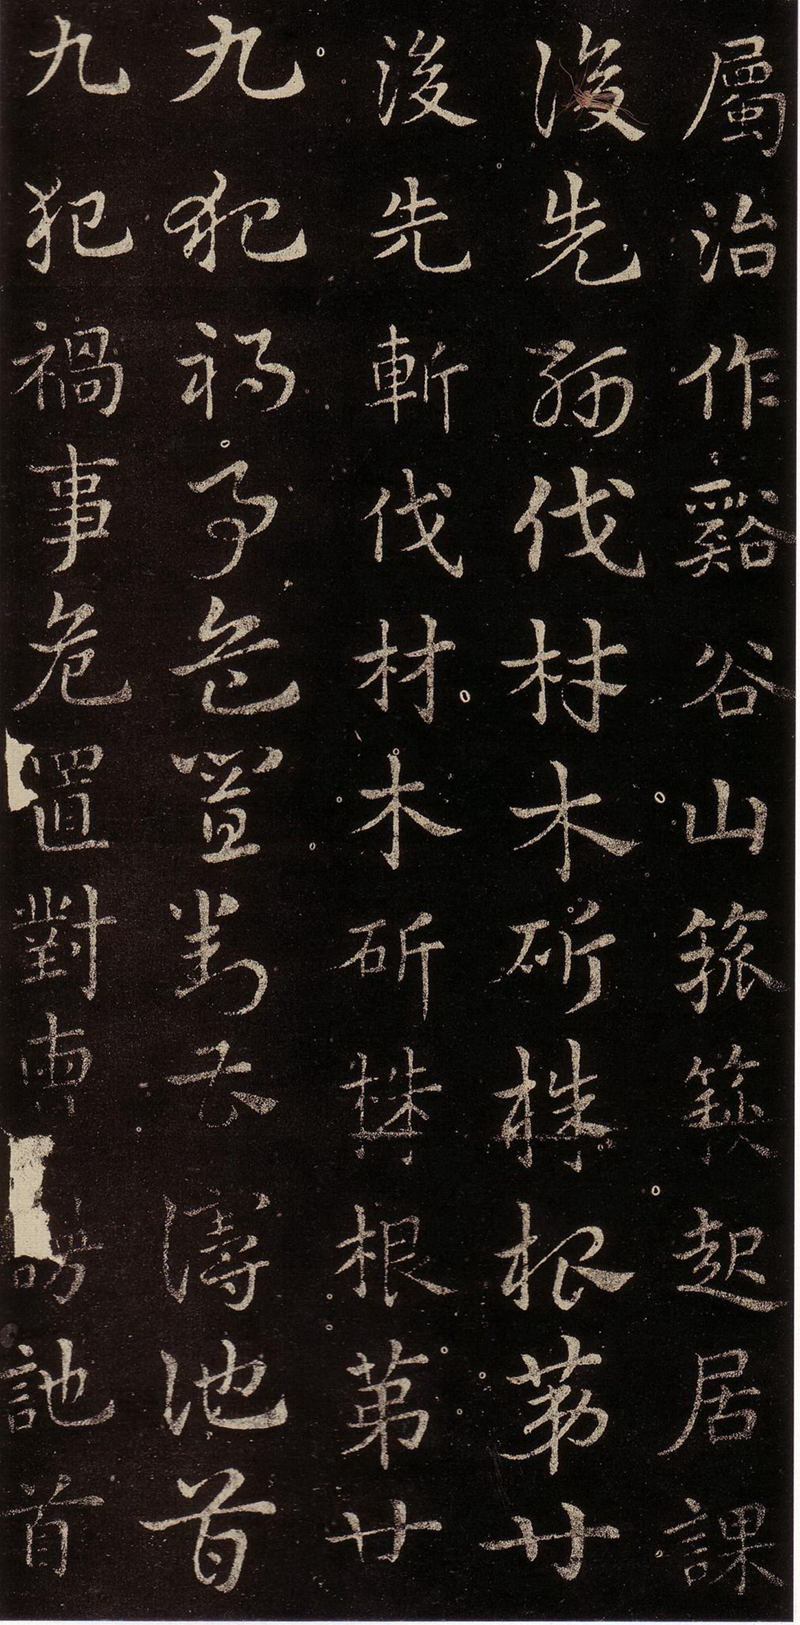 屬治作谿谷山箛篍起居課
後先斬伐材木斫株根第廿
後先斬伐材木斫株根第廿
九犯禍事危置對曹首
九犯禍事危置對曹訑首